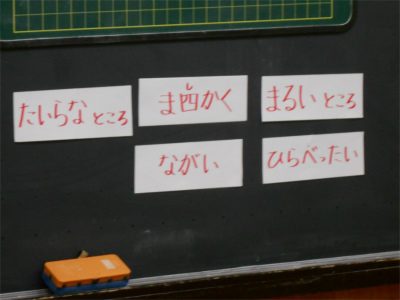 たいらなところ
ま四かく
まるいところ
ながい
ひらべったい